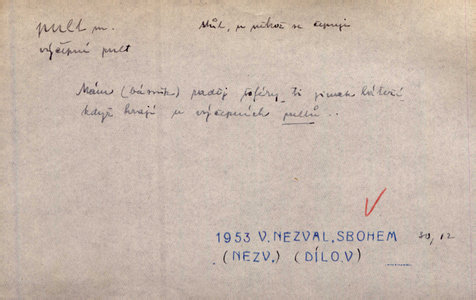 pult m. stůl, u něhož se čepuje
výčepní pult
Mám (básník) raděj šoféry ti jinak láteří
když hrají u výčepních pultů..
1953 V. NEZVAL, SBOHEM 30, 12
(NEZV.) (DÍLO V)